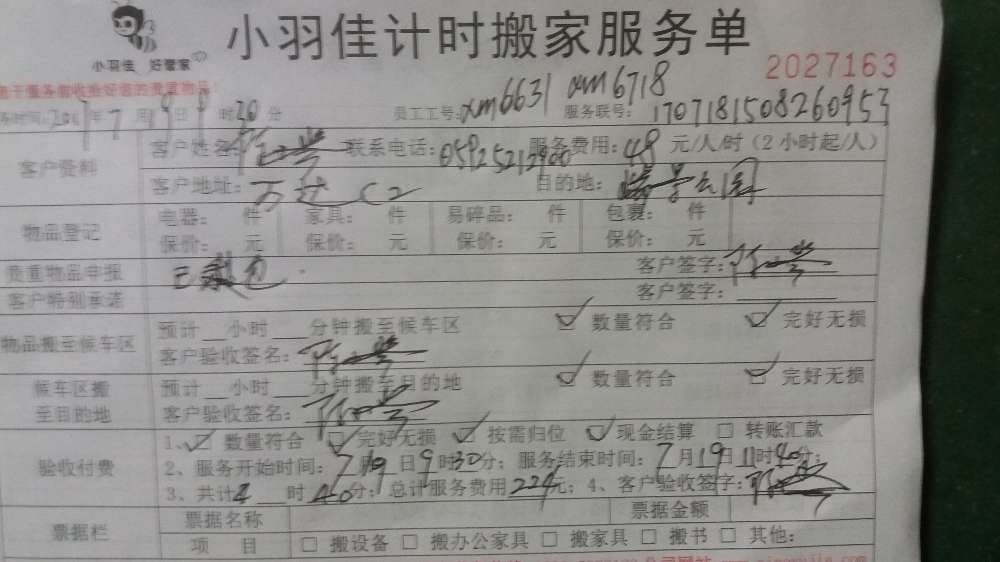 小羽佳 好管家
小羽佳计时搬家服务单
2027163
务时间:2017年7月19日9时30分 员工工号:xm6631 xm6718 服务联号:1707181508260953
客户资料
客户姓名: 联系电话:05925213900 服务费用:48元/人/时(2小时起/人)
客户地址:万达C2 目的地:
物品登记
电器: 件 家具: 件 易碎品: 件 包裹: 件
保价: 元 保价: 元 保价: 元 保价: 元
贵重物品申报 客户签字:
客户特别承诺 客户签字:
物品搬至候车区
预计__小时___分钟搬至候车区 数量符合 完好无损
客户验收签名:
候车区搬至目的地
预计__小时___分钟搬至目的地 数量符合 完好无损
客户验收签名:
验收付费
1、 数量符合 完好无损 按需归位 现金结算 转账汇款
2、服务开始时间:7月19日9时30分;服务结束时间:7月19日11时40分;
3、共计4时40分;总计服务费用224元;4、客户验收签字:
票据栏
票据名称 票据金额
项 目 搬设备 搬办公家具 搬家具 搬书 其他: